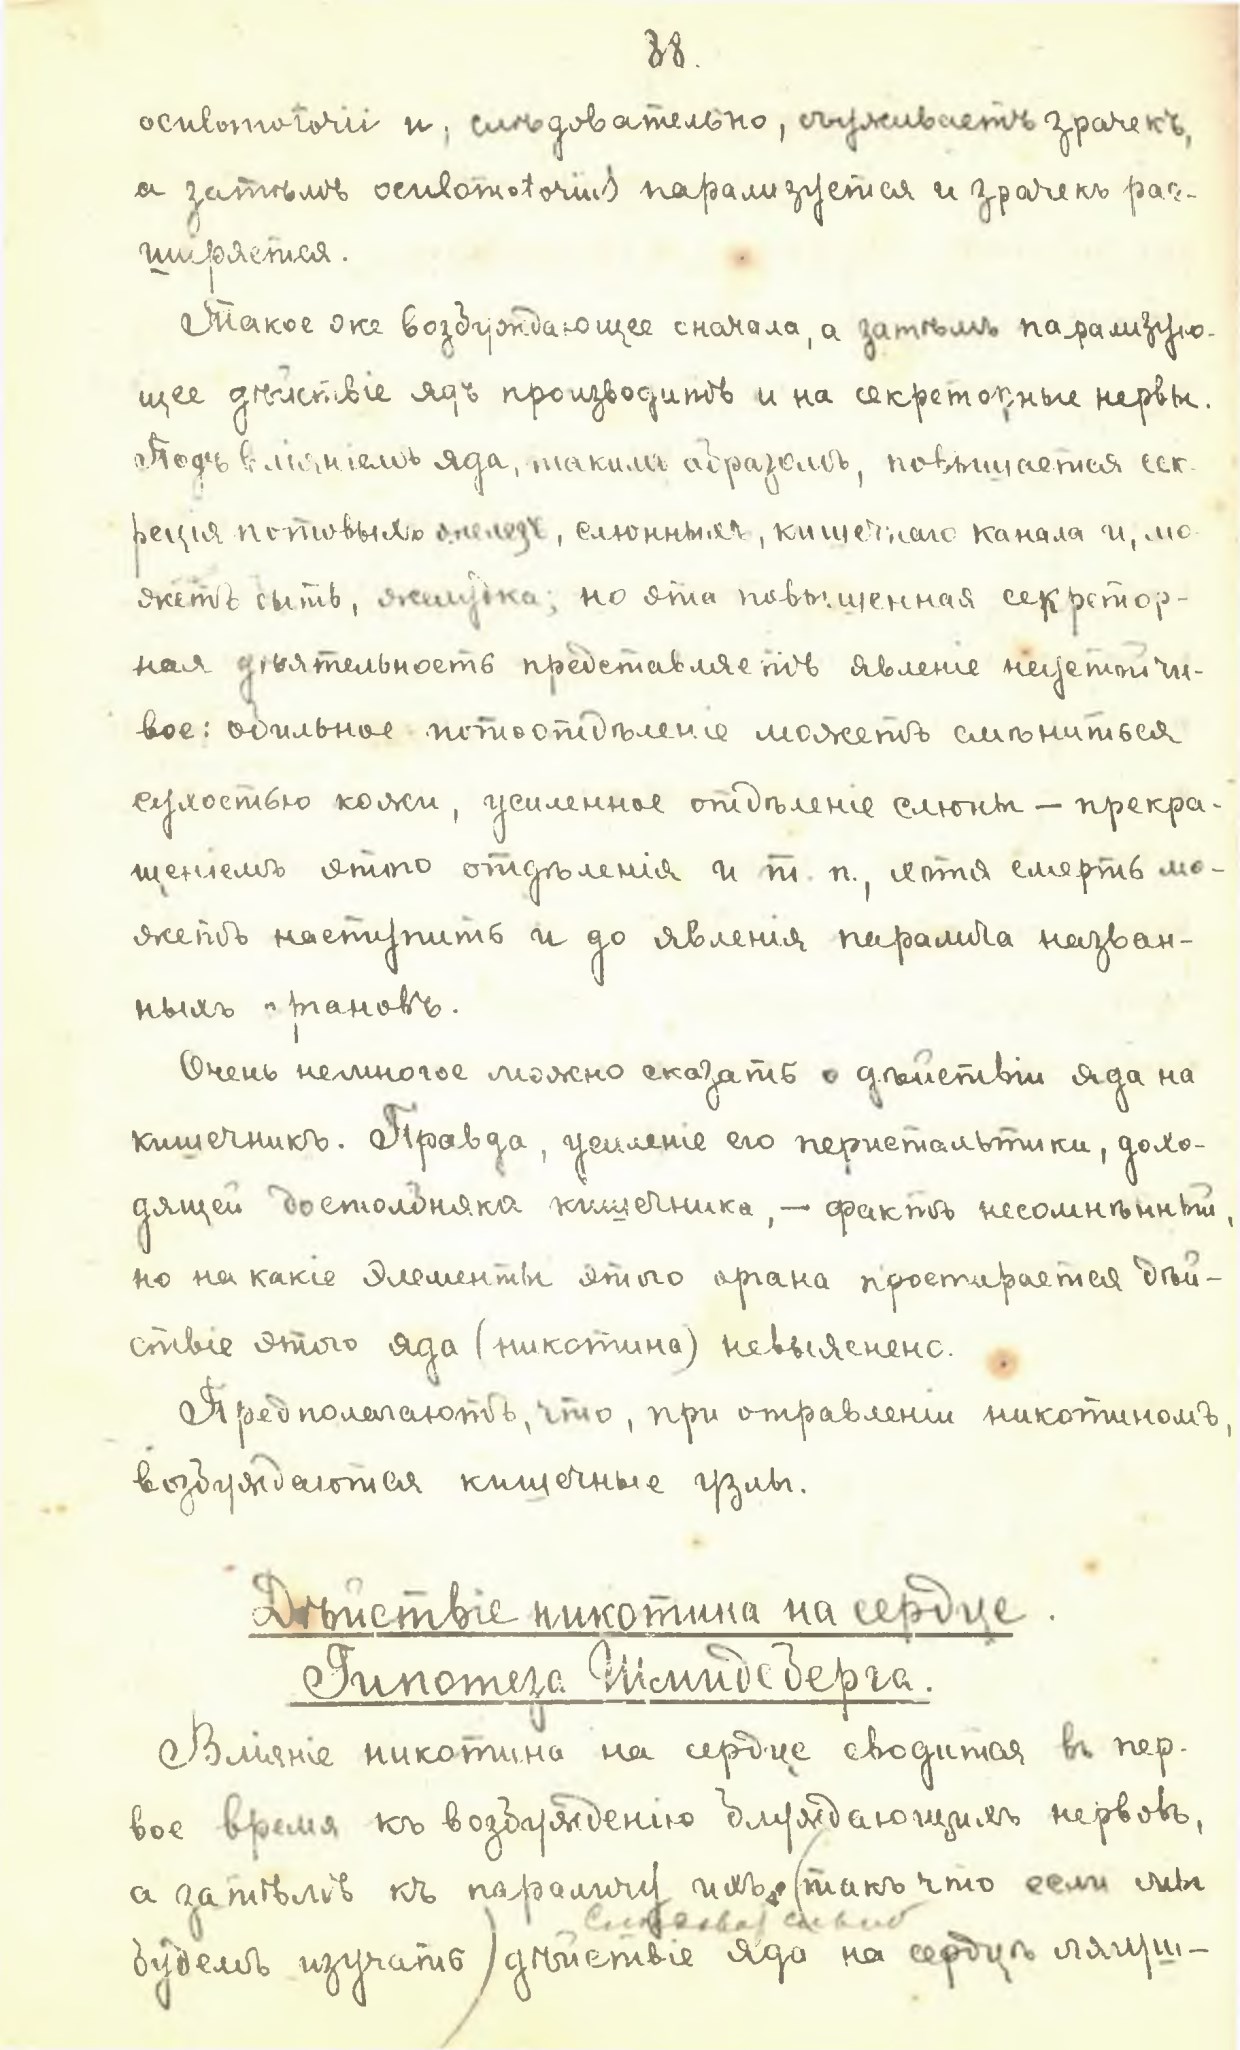 38.
oculomotorii и, слѣдовательно, съуживаетъ зрачекъ,
а затѣмъ oculomotorius парализуется и зрачекъ рас-
ширяется.
Такое же возбуждающее сначала, а затѣмъ парализую-
щее дѣйствіе ядъ производитъ и на секреторные нервы.
Подъ вліяніемъ яда, такимъ образомъ, повышается сек-
реція потовыхъ железъ, слюнныхъ, кишечнаго канала и, мо-
жетъ быть, желудка; но эта повышенная секретор-
ная дѣятельность представляетъ явленіе неустойчи-
вое: обильное потоотдѣленіе можетъ смѣниться
сухостью кожи, усиленное отдѣленіе слюны — прекра-
щеніемъ этого отдѣленія и т. п., хотя смерть мо-
жетъ наступить и до явленія паралича назван-
ныхъ органовъ.
Очень немногое можно сказать о дѣйствіи яда на
кишечникъ. Правда, усиленіе его перистальтики, дохо-
дящей до столбняка кишечника, — фактъ несомнѣнный,
но на какіе элементы этого органа простирается дѣй-
ствіе этого яда (никотина) невыяснено.
Предполагаютъ, что, при отравленіи никотиномъ,
возбуждаются кишечные узлы.
Дѣйствіе никотина на сердце.
Гипотеза Шмидеберга.
Вліяніе никотина на сердце сводится въ пер-
вое время къ возбужденію блуждающихъ нервовъ,
а затѣмъ къ параличу ихъ. (такъ что если мы
будемъ изучать) дѣйствіе яда на сердцѣ лягуш-